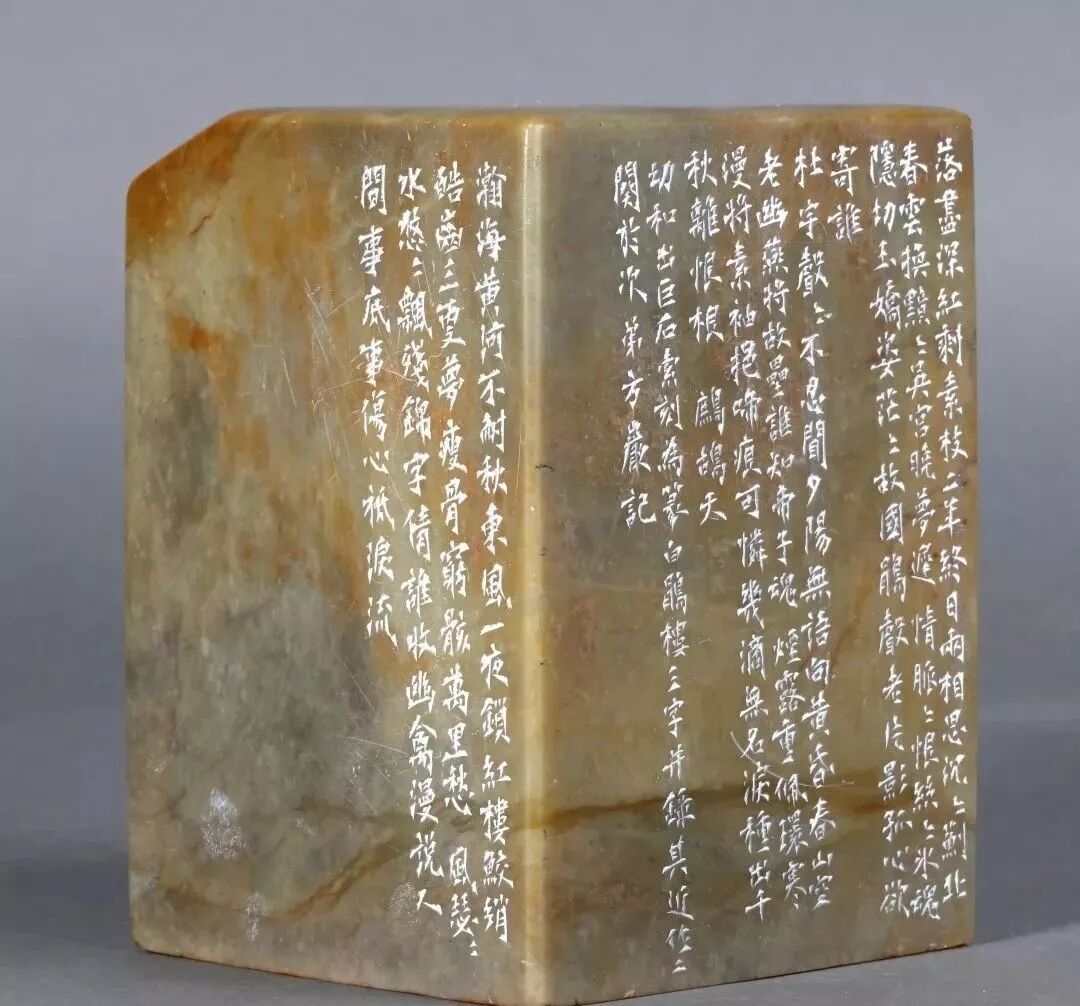 落盡深紅剩素枝二年終日兩相思沉〻薊北
春雲換黯〻吳宮曉夢遲情脈〻恨絲〻冰魂
隱切玉嬌姿茫〻故國鵑聲老片影孤心欲
寄誰
杜宇聲〻不忍聞夕陽無語向黃昏春山空
老幽燕將故壘誰知帝子魂 煙露重佩環寒
漫將素袖挹啼痕可憐幾滴無名淚種出千
秋離恨根 鷓鴣天
切和出巨石索刻為篆白鵑樓三字并錄其近作二
闋於次 弟方嚴記
瀚海黃河不耐秋東風一夜鎖紅樓鮫綃
皓齒三更夢瘦骨窮骸萬里愁 風瑟〻
水悠〻飄殘錦字倩誰收幽禽漫說人
間事底事傷心祇淚流